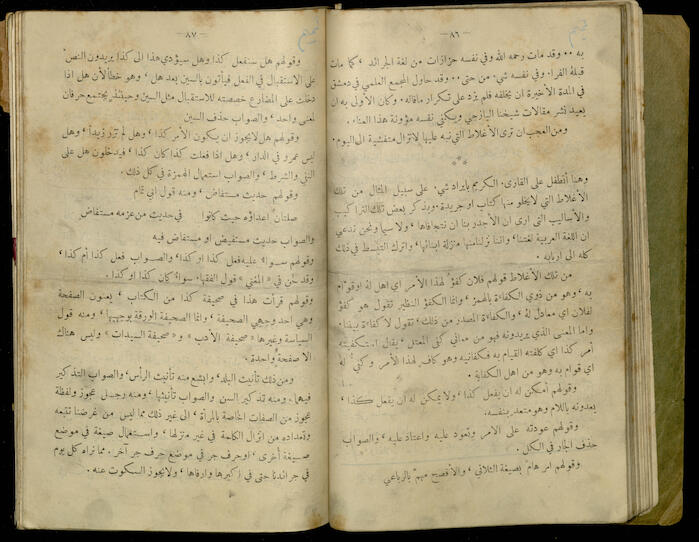 — ٨٦ —
به ٠٠ وقد مات رحمه الله وفي نفسه حزازات من لغة الجرائد ، كما مات
قبله الفراء وفي نفسه شيء من حتى ٠٠ وقد حاول المجمع العلمي في دمشق
في المدة الأخيرة ان يخلفه فلم يزد على تكرار ماقاله ٠ وكان الأولى به ان
يعيد نشر مقالات شيخنا اليازجي ويكفي نفسه مؤونة هذا العناء ٠
ومن العجب ان ترى الأغلاط التي نبه عليها لاتزال متفشية الى اليوم ٠
وهنا أتطفل على القارئ الكريم بايراد شيء على سبيل المثال من تلك
الأغلاط التي لايخلو منها كتاب او جريدة ٠ وبذكر بعض تلك التراكيب
والأساليب التي ارى ان الأجدر بنا ان نتجافاها ، ولا سيما ونحن ندعي
ان اللغة العربية لغتنا ، واننا نزلنا منها منزلة ابنائها ، واترك التبسط في ذلك
كله الى اربابه ٠
من تلك الأغلاط قولهم فلان كفؤ لهذا الأمر اي اهل له او قوام
به ، وهو من ذوي الكفاءة بالهمز ، وانما الكفؤ النظير تقول هو كفؤ
لفلان اي معادل له ، والكفاءة المصدر من ذلك ، تقول لا كفاءة بيننا ٠
واما المعنى الذي يريدونه فهو من معاني كفى المعتل ، يقال استكفيته
أمر كذا اي كلفته القيام به فكفانيه وهو كاف لهذا الأمر وكفيّ له
اي قوام به وهو من اهل الكفاية ٠
وقولهم أمكن له ان يفعل كذا ، ولا يمكن له ان يفعل كذا ،
يعدونه باللام وهو متعد بنفسه ٠
وقولهم عودته على الامر وتعود عليه واعتاد عليه ، والصواب
حذف الجار في الكل ٠
وقولهم امر هامّ بصيغة الثلاثي ، والأفصح مهمّ بالرباعي
— ٨٧ —
وقولهم هل سنفعل كذا وهل سيؤدي هذا الى كذا يريدون النص
على الاستقبال في الفعل فيأتون بالسين بعد هل ، وهو خطأ لأن هل اذا
دخلت على المضارع خصصته للاستقبال مثل السين وحينئذ يجتمع حرفان
لمعنى واحد ، والصواب حذف السين
وقولهم هل لايجوز ان يكون الأمر كذا ، وهل لم تزر زيداً ، وهل
ليس عمرو في الدار ، وهل اذا فعلت كذا كان كذا ، فيدخلون هل على
النفي والشرط ، والصواب استعمال الهمزة في كل ذلك ٠
وقولهم حديث مستفاض ، ومنه قول ابي تمام
صلتان اعداؤه حيث كانوا في حديث من عزمه مستفاض
والصواب حديث مستفيض او مستفاض فيه
وقولهم سواء عليه فعل كذا او كذا ، والصواب فعل كذا أم كذا ،
وقد لحن في « المغني » قول الفقهاء سواء كان كذا او كذا ٠
وقولهم قرأت هذا في صحيفة كذا من الكتاب ، يعنون الصفحة
وهي احد وجهي الصحيفة ، وانما الصحيفة الورقة بوجهيها ، ومنه قول
السياسة وغيرها « صحيفة الأدب » و « صحيفة السيدات » وليس هناك
الا صفحة واحدة ٠
ومن ذلك تأنيث البلد ، وابشع منه تأنيث الرأس ، والصواب التذكير
فيهما ، ومنه تذكير السن والصواب تأنيثها ، ومنه رجل عجوز ولفظة
عجوز من الصفات الخاصة بالمرأة ، الى غير ذلك مما ليس من غرضنا تتبعه
وتعداده من انزال الكلمة في غير منزلها ، واستعمال صيغة في موضع
صيغة أخرى ، او حرف جر في موضع حرف جر آخر ٠ مما نراه كل يوم
في جرائدنا حتى في اكبرها وارقاها ، ولا يجوز السكوت عنه ٠